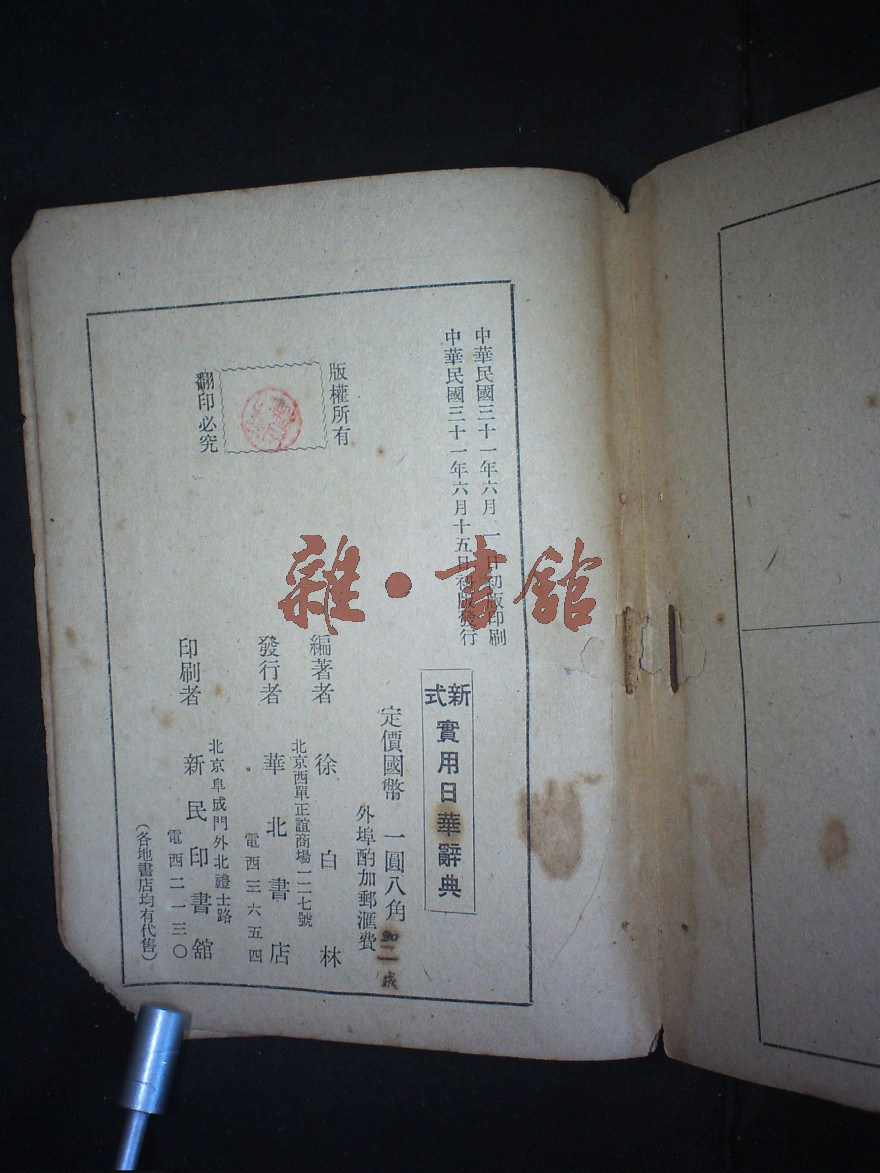 中華民國三十一年六月一日初版印刷
中華民國三十一年六月十五日初版發行
新式實用日華辭典
定價國幣一圓八角
加二成
外埠酌加郵滙費
版權所有
翻印必究
編著者 徐白林
北京西單正誼商場一二七號
發行者 華北書店
電西三六五四
北京阜成門外北禮士路
印刷者 新民印書館
電西二一三〇
(各地書店均有代售)
雜·書館